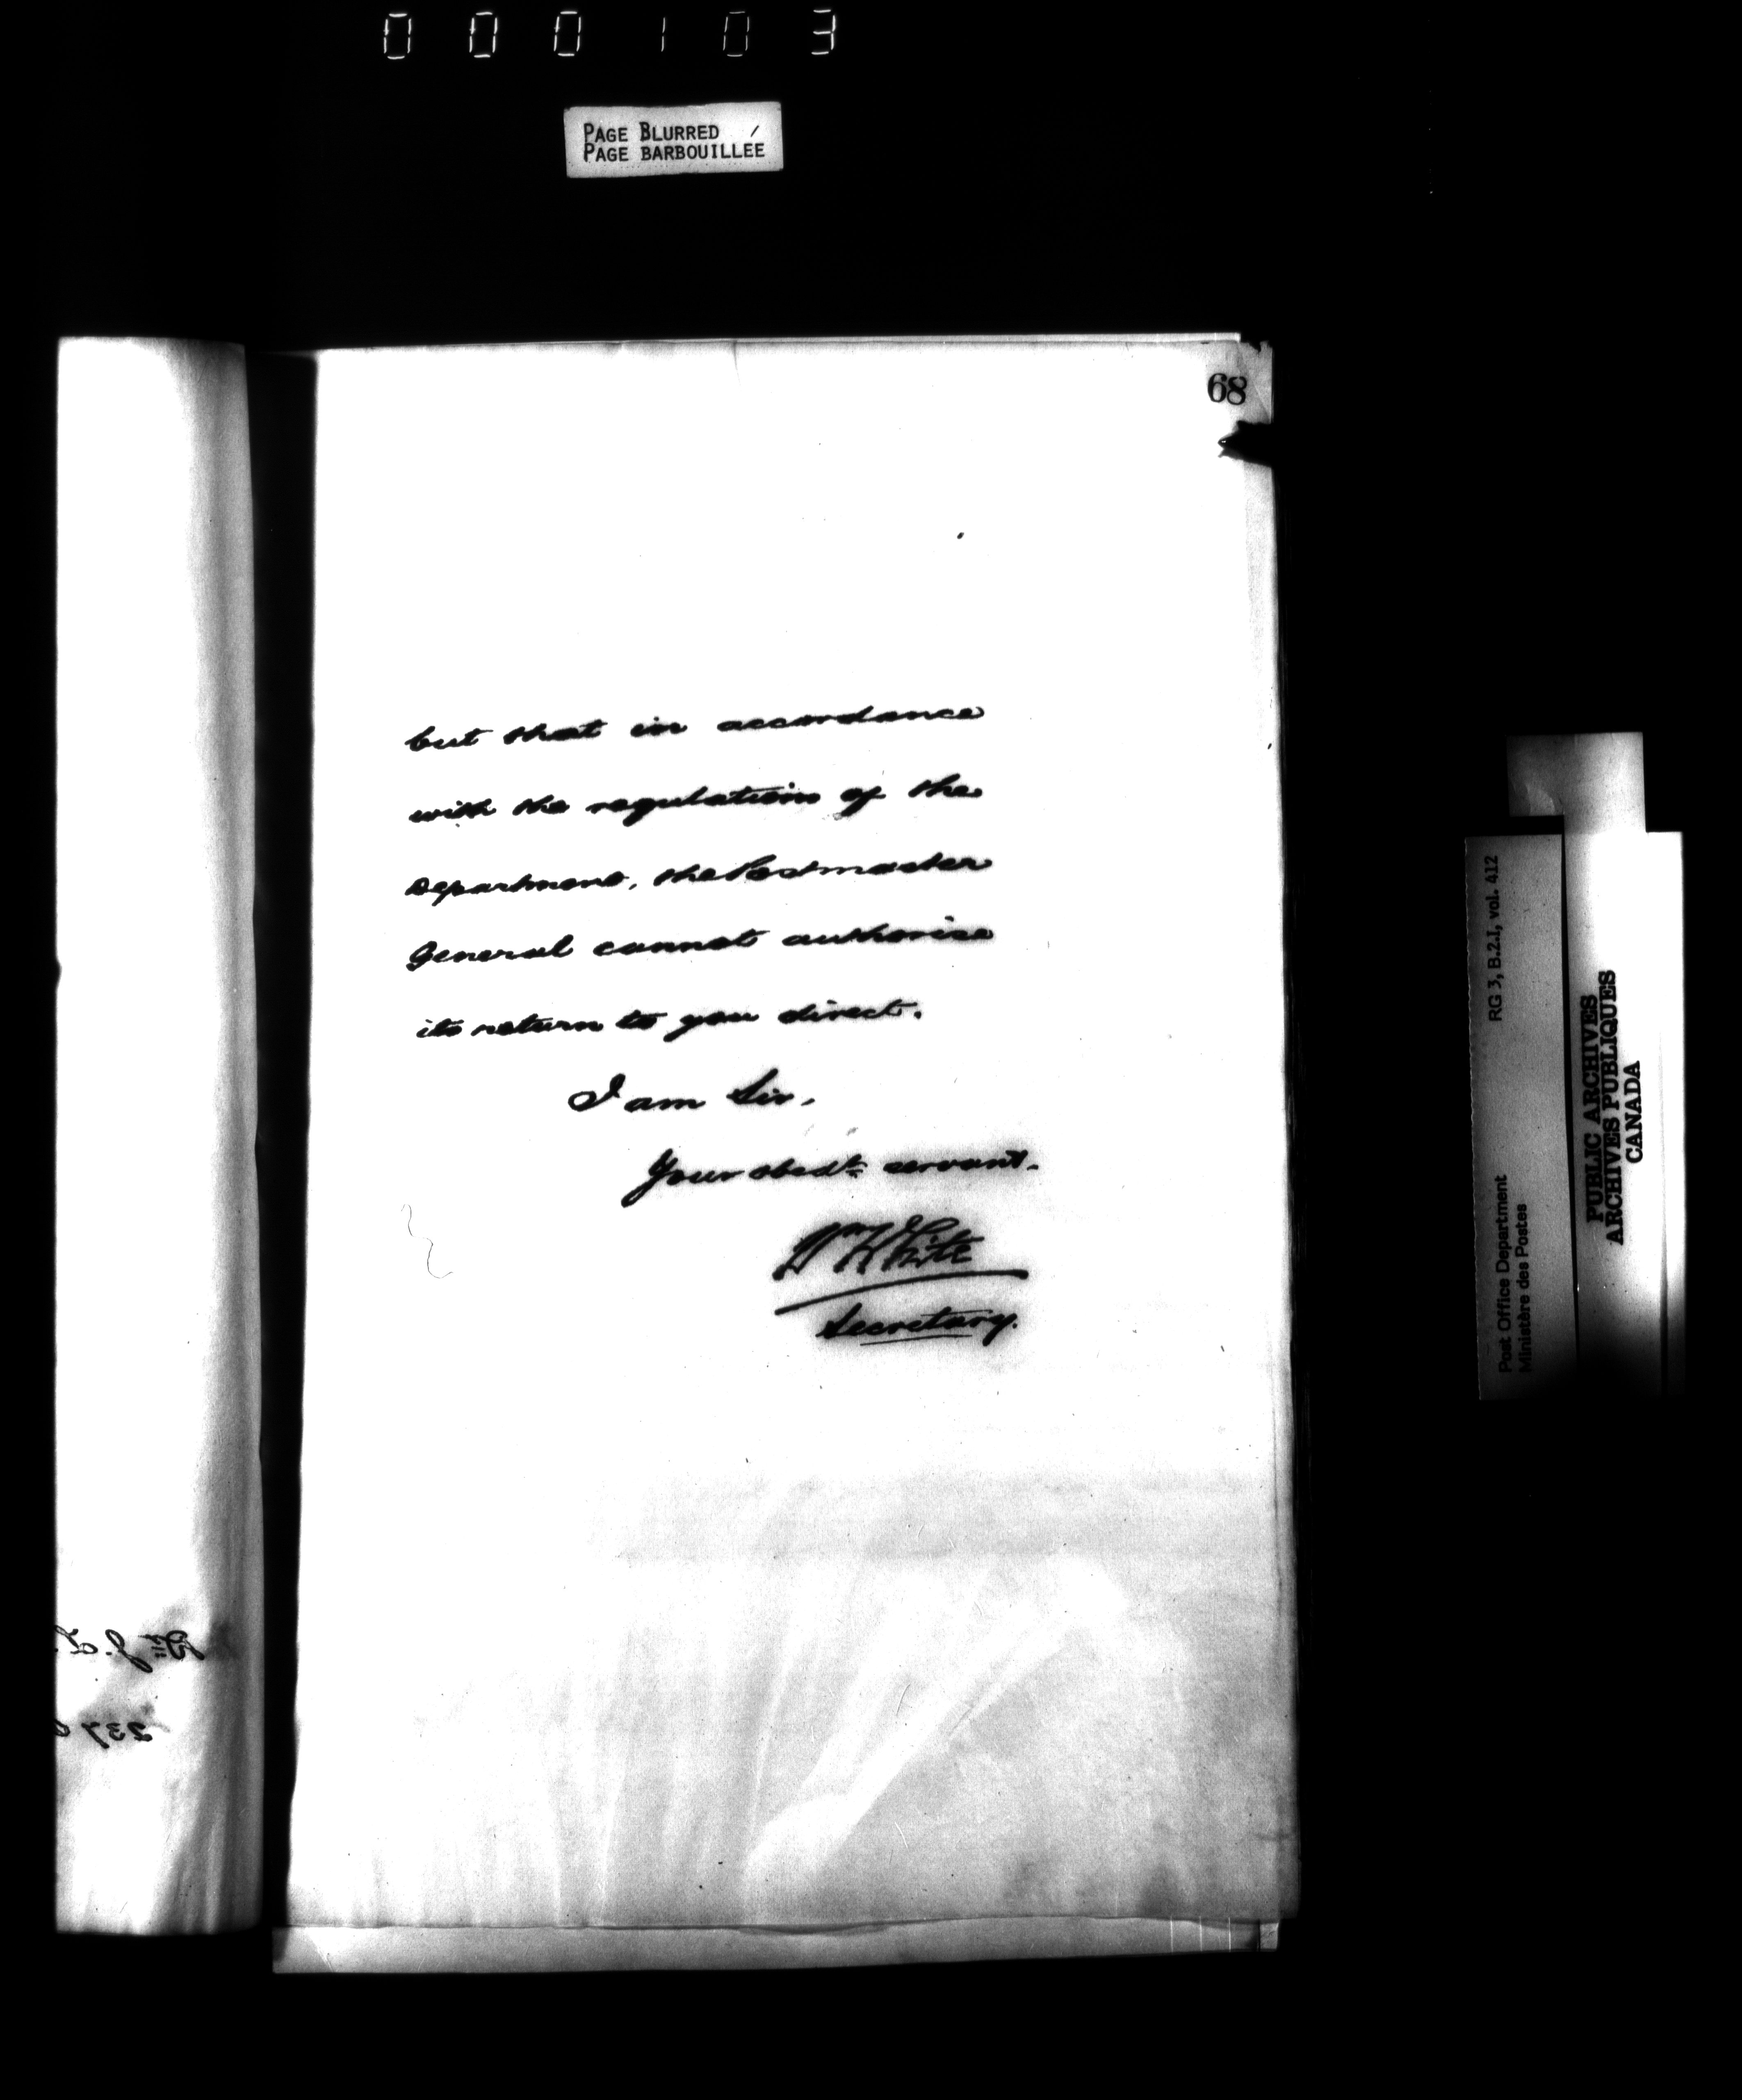 000103
PAGE BLURRED
PAGE BARBOUILLÉE
68
but that in accordance
with the regulations of the
Department, the Postmaster
General cannot authorise
its return to you direct.
I am Sir,
Your obedt. servant.
Wm White
Secretary.
RG 3, B.2.I, vol. 412
Post Office Department
Ministère des Postes
PUBLIC ARCHIVES
ARCHIVES PUBLIQUES
CANADA